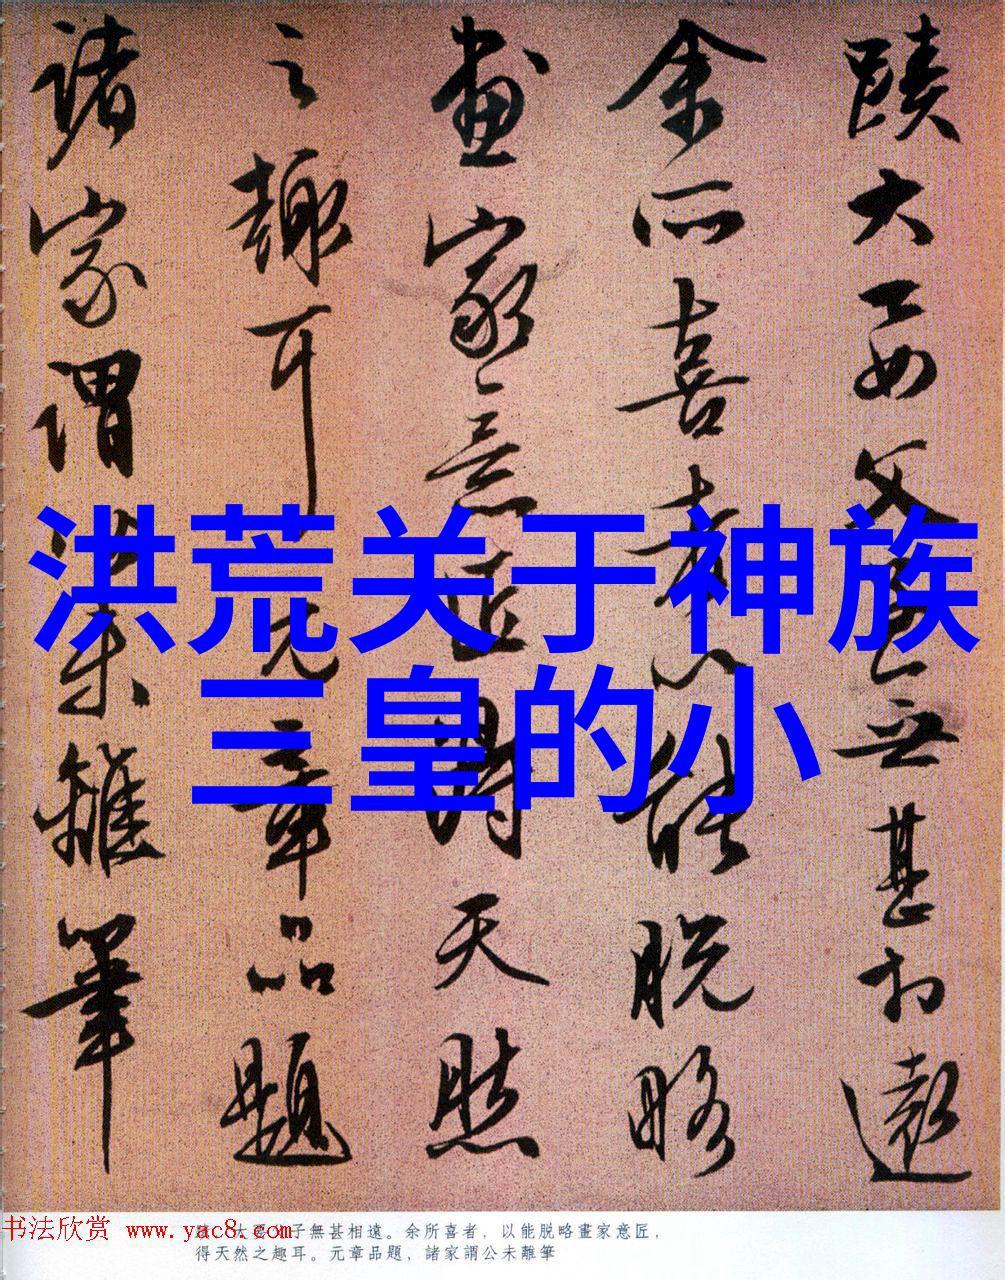 蹟大要父子無甚相遠
余所喜者以能脱略
畫家意匠得天然
之趣耳元章品題
諸家謂公未離筆
洪荒关于神族
三皇的小
书法欣赏 www.yac8.com
大要父子無甚相遠。余所喜者，以能脱略畫家意匠，
得天然之趣耳。元章品題，諸家謂公未離筆